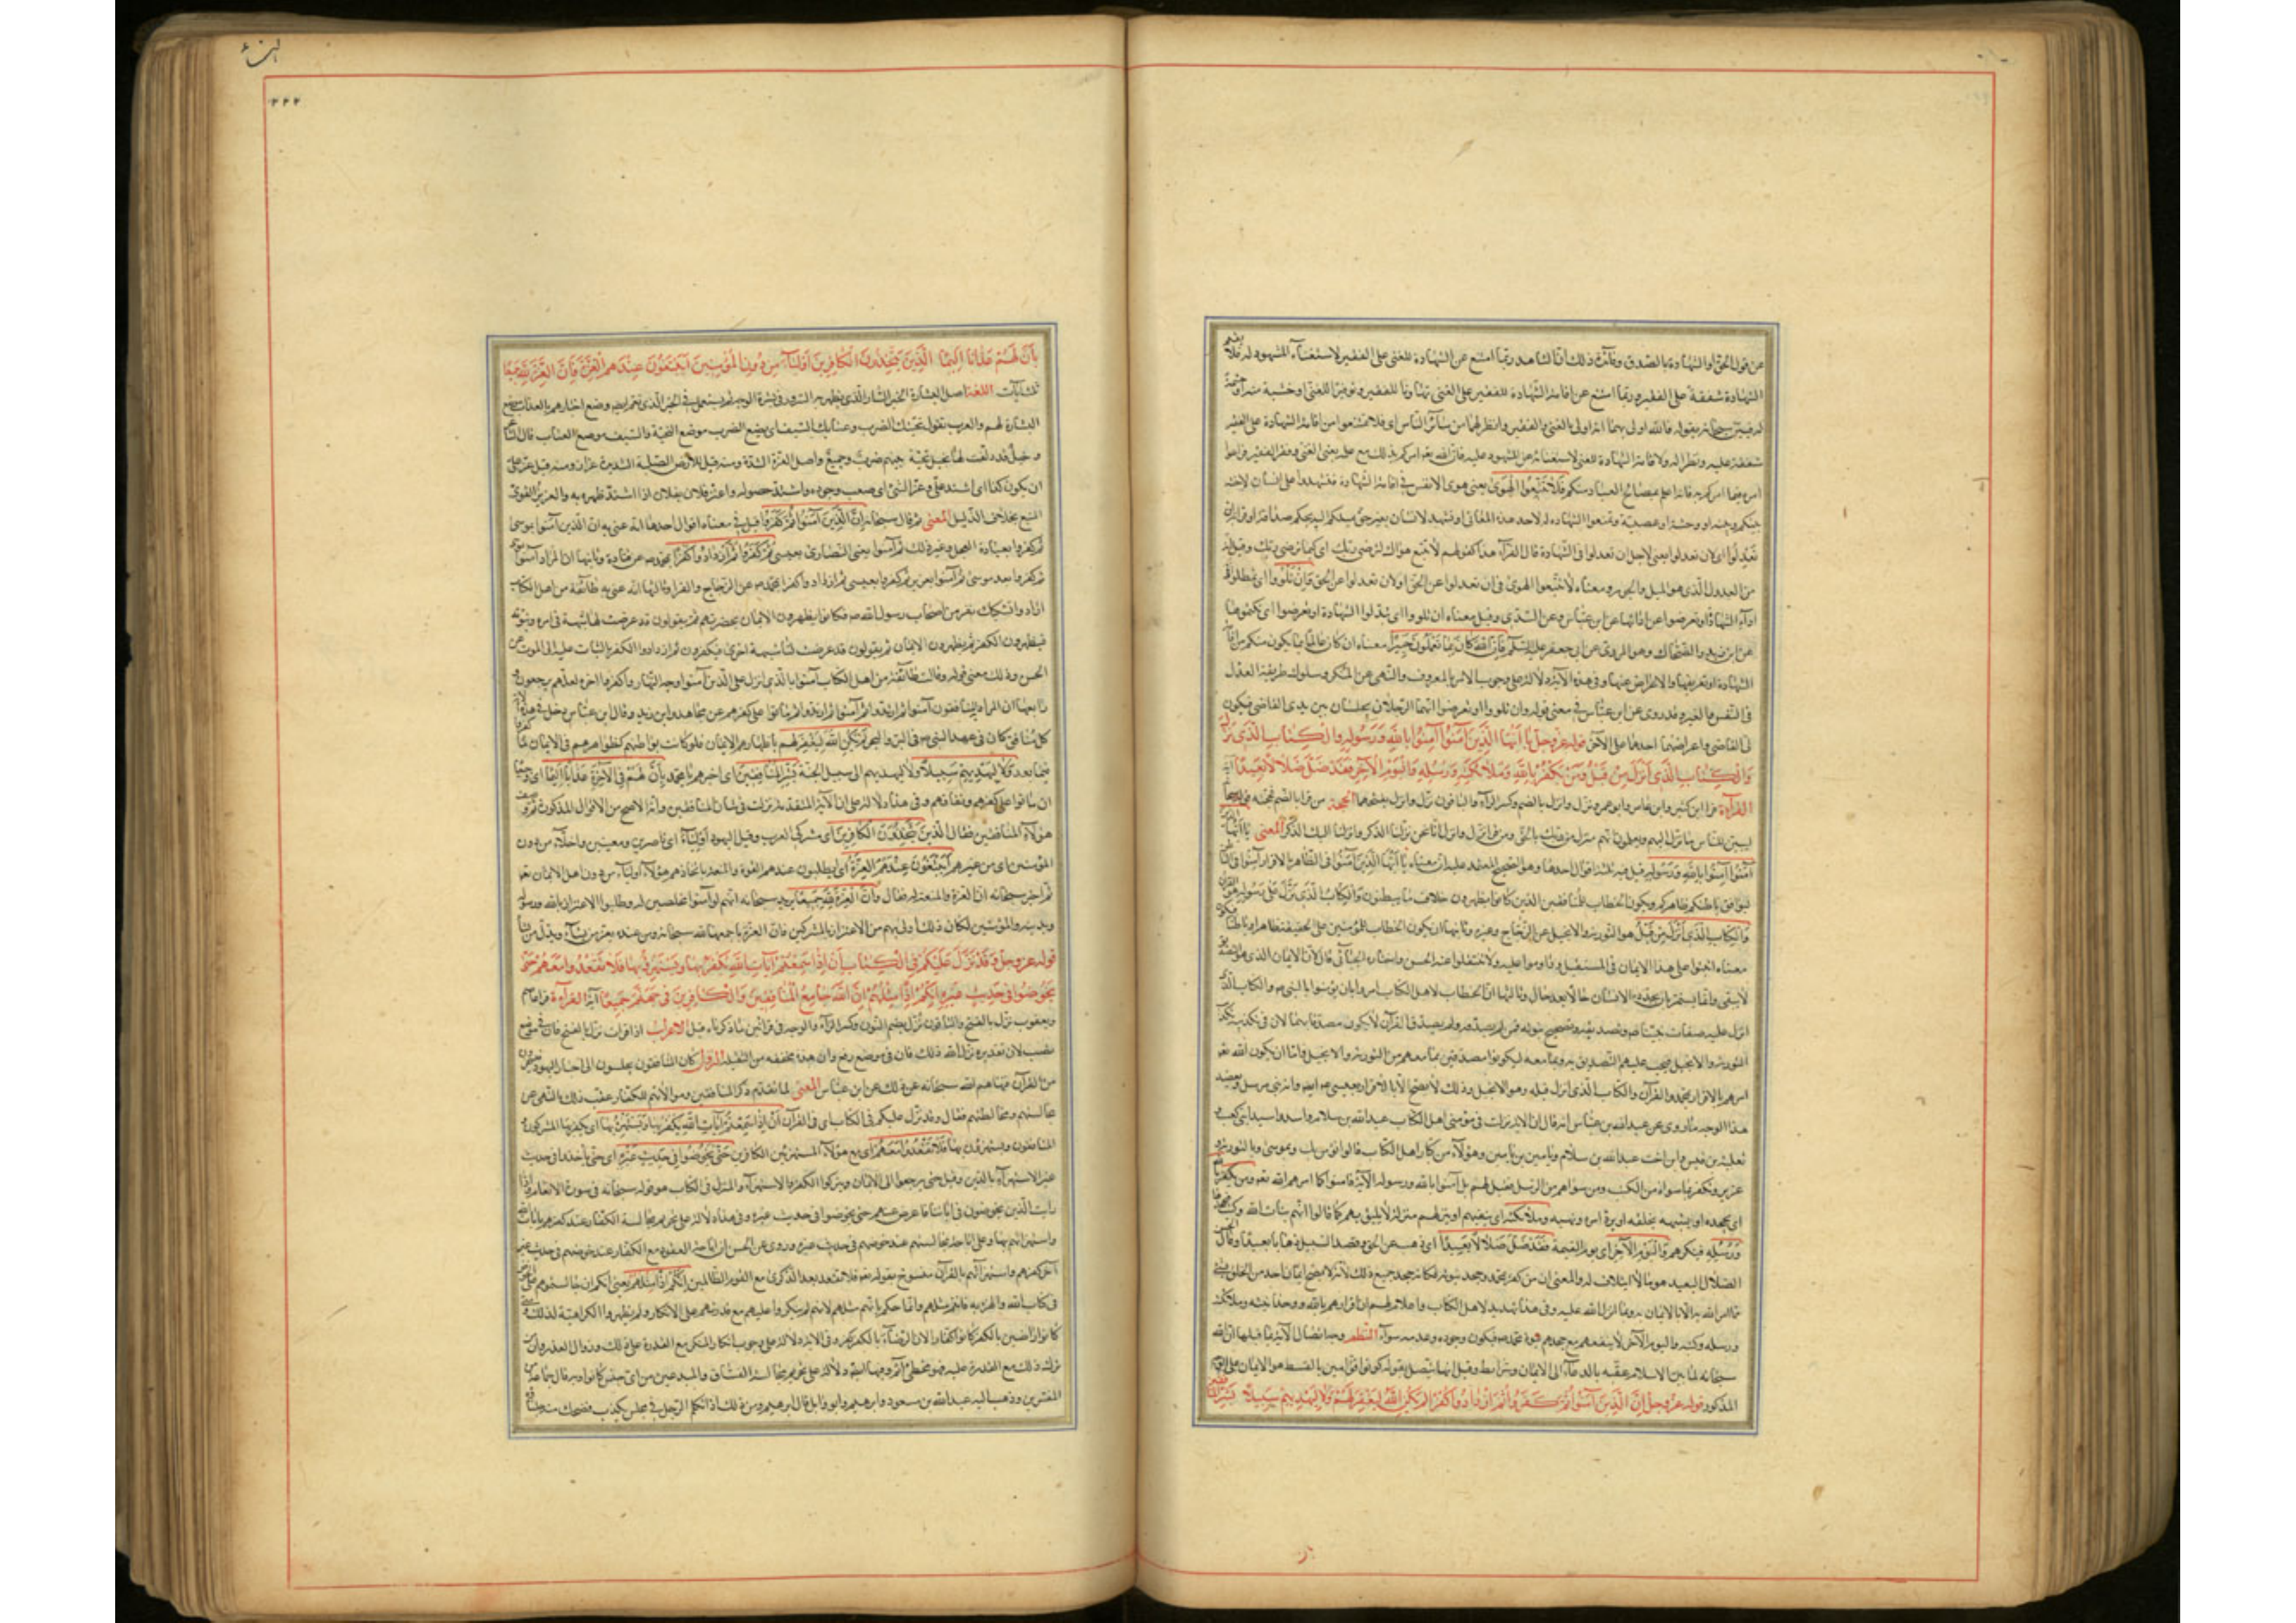 عن قول الحق او الشهادة بالصدق وفائدة ذلك ان الشاهد ربما امتنع عن الشهادة للغنى على الفقير لاستغناء المشهود له فلا يقيم
الشهادة شفقة على الفقير وربما امتنع عن اقامة الشهادة للفقير على الغنى تهاونا للفقير وتوقيرا للغنى او خشية منه او حشمة
له فبين سبحانه بقوله فالله اولى بهما انه اولى بالغنى والفقير وانظر لهما من سائر الناس اى فلا تمتنعوا من اقامة الشهادة على الفقير
شفقة عليه ونظرا له ولا اقامة الشهادة للغنى لاستغنائه عن المشهود عليه فان الله تعه امركم بذلك مع علمه بغنى الغنى وفقر الفقير فراعوا
امره فيما امركم به فانه اعلم بمصالح العباد منكم فلا تتبعوا الهوى يعنى هوى الانفس فى اقامة الشهادة فتشهدوا على انسان لاحنة
بينكم وبينه او وحشة او عصبية وتمنعوا الشهادة له لاحد هذه المعانى او تشهد لانسان بغير حق ميلكم اليه بحكم صداقة او قرابة ان
تعدلوا اى لان تعدلوا يعنى لاجل ان تعدلوا فى الشهادة قال الفراء هذا كقولهم لا تتبع هواك لترضى ربك اى كيما ترضى ربك وقيل انه
من العدول الذى هو الميل والجور ومعناه لا تتبعوا الهوى فى ان تعدلوا عن الحق او لان تعدلوا عن الحق فان تلووا اى تمطلوا فى
اداء الشهادة او تعرضوا عن ادائها عن ابن عباس وعن السدى وقيل معناه ان تلووا اى تبدلوا الشهادة او تعرضوا اى تكتموها
عن ابن زيد والضحاك وهو المروى عن ابى جعفر عليه السلم فان الله كان بما تعملون خبيرا معناه ان كان عالما بما يكون منكم من اقامة
الشهادة او تحريفها والاعراض عنها وفى هذه الآية دلالة على وجوب الامر بالمعروف والنهى عن المنكر وسلوك طريقة العدل
فى النفس والغير وقد روى عن ابن عباس فى معنى قوله وان تلووا او تعرضوا انهما الرجلان يجلسان بين يدى القاضى فيكون
لى القاضى واعراضهما احدهما على الآخر قوله عز وجل يا ايها الذين آمنوا آمنوا بالله ورسوله والكتاب الذى نزل
والكتاب الذى انزل من قبل ومن يكفر بالله وملائكته ورسله واليوم الآخر فقد ضل ضلالا بعيدا آية
القراءة قرأ ابن كثير وابن عامر وابو عمرو نزل وانزل بالضم وكسر الزاء والباقون نزل وانزل بفتحهما الحجة من قرا بالضم فحجته
ليبين للناس ما نزل اليهم ويعلمون انه منزل من ربك بالحق ومن قرأ نزل وانزل انا نحن نزلنا الذكر وانزلنا اليك الذكر المعنى يا ايها الذين
آمنوا آمنوا بالله ورسوله قيل فيه ثلثة اقوال احدها وهو الصحيح المعتمد عليه ان معناه يا ايها الذين آمنوا فى الظاهر بالاقرار آمنوا فى الباطن
ليوافق باطنكم ظاهركم ويكون الخطاب للمنافقين الذين كانوا يظهرون خلاف ما يبطنون والكتاب الذى نزل على رسوله هو القرآن
والكتاب الذى انزل من قبل هو التورية والانجيل عن الزجاج وغيره وثانيها ان يكون الخطاب للمؤمنين على الحقيقة ظاهرا وباطنا
معناه اثبتوا على هذا الايمان فى المستقبل وداوموا عليه ولا تنتقلوا عنه عن الحسن واختاره الجبائى قال لان الايمان الذى هو التصديق
لا يبقى وانما يستمر بان يجدده الانسان حالا بعد حال وثالثها ان الخطاب لاهل الكتاب امروا بان يؤمنوا بالنبى ص والكتاب الذى
انزل عليه
التورية والانجيل فيجب عليهم التصديق به وبما معه ليكونوا مصدقين بما معهم من التورية والانجيل فاما ان يكون الله تعه
امرهم بالاقرار بمحمد والقرآن والكتاب الذى انزل قبله وهو الانجيل وذلك لا يصح الا بالاقرار بعيسى ع ايضا وانه نبى مرسل ويعضد
هذا الوجه ما روى عن عبد الله بن عباس انه قال ان الآية نزلت فى مؤمنى اهل الكتاب عبد الله بن سلام واسد واسيد ابنى كعب و
ثعلبة بن قيس وابن اخت عبد الله بن سلام ويامين بن يامين وهؤلاء من كبار اهل الكتاب قالوا نؤمن بك وبموسى وبالتورية و
عزير ونكفر بما سواه من الكتب ومن سواهم من الرسل فقيل لهم بل آمنوا بالله ورسوله الآية فآمنوا كما امرهم الله تعه ومن يكفر بالله
اى يجحده او يشبهه بخلقه او يرد امره ونهيه وملائكته اى ينفيهم او ينزلهم منزلة لا يليق بهم كما قالوا انهم بنات الله وكتبه
ورسله فينكرهم واليوم الآخر اى يوم القيمة فقد ضل ضلالا بعيدا اى ذهب عن الحق وقصد السبيل ذهابا بعيدا وقال الحسن
الضلال البعيد هو ما لا ائتلاف له والمعنى ان من كفر بمحمد وجحد نبوته فكانه جحد جميع ذلك لانه لا يصح ايمان احد من الخلق بشئ
مما امر الله به الا بالايمان به وبما انزل الله عليه وفى هذا تهديد لاهل الكتاب واعلام لهم ان اقرارهم بالله ووحدانيته وملائكته
ورسله وكتبه واليوم الآخر لا ينفعهم مع جحدهم نبوة محمد ص فيكون وجوده وعدمه سواء النظم وجه اتصال الآية بما قبلها ان الله
سبحانه لما بين الاسلام عقبه بالدعاء الى الايمان وشرائطه وقيل انها تتصل بقوله كونوا قوامين بالقسط هو الايمان على الوجه
المذكور قوله عز وجل ان الذين آمنوا ثم كفروا ثم ازدادوا كفرا لم يكن الله ليغفر لهم ولا ليهديهم سبيلا بشر المنافقين
لهزء
٢٢٢
بان لهم عذابا اليما الذين يتخذون الكافرين اولياء من دون المؤمنين ايبتغون عندهم العزة فان العزة لله جميعا
ثلث آيات اللغة اصل البشارة الخبر السار الذى يظهر به السرور فى بشرة الوجه ثم يستعمل فى الخبر الذى يغم ايضا وضع اخبارهم بالعذاب موضع
البشارة لهم والعرب تقول تحيتك الضرب وعتابك السيف اى يضع الضرب موضع التحية والسيف موضع العتاب قال الشاعر
وخيل قد دلفت لها بخيل تحية بينهم ضرب وجيع واصل العزة الشدة ومنه قيل للارض الصلبة الشديدة عزاز ومنه قيل عز على
ان يكون كذا اى اشتد على وعز الشئ اى صعب وجوده واشتد حصوله واعتز فلان بفلان اذا اشتد ظهره به والعزيز القوى
المنيع بخلاف الذليل المعنى ثم قال سبحانه ان الذين آمنوا ثم كفروا قيل فى معناه اقوال احدها انه عنى به ان الذين آمنوا بموسى
ثم كفروا بعبادة العجل وغير ذلك ثم آمنوا يعنى النصارى بعيسى ثم كفروا ثم ازدادوا كفرا بمحمد ص عن قتادة وثانيها ان المراد آمنوا بموسى
ثم كفروا بعد موسى ثم آمنوا بعزير ثم كفروا بعيسى ثم ازدادوا كفرا بمحمد ص عن الزجاج والفراء وثالثها انه عنى به طائفة من اهل الكتاب
ارادوا تشكيك نفر من اصحاب رسول الله ص فكانوا يظهرون الايمان بحضرتهم ثم يقولون قد عرضت لنا شبهة فى امره ونبوته
فيظهرون الكفر ثم يظهرون الايمان ثم يقولون قد عرضت لنا شبهة اخرى فيكفرون ثم ازدادوا الكفر بالثبات عليه الى الموت عن
الحسن وذلك معنى قوله وقالت طائفة من اهل الكتاب آمنوا بالذى انزل على الذين آمنوا وجه النهار واكفروا آخره لعلهم يرجعون و
رابعها ان المراد به المنافقون آمنوا ثم ارتدوا ثم آمنوا ثم ارتدوا ثم ماتوا على كفرهم عن مجاهد وابن زيد وقال ابن عباس دخل فى هذه الآية
كل منافق كان فى عهد النبى ص فى البر والبحر لم يكن الله ليغفر لهم باظهارهم الايمان فلو كانت بواطنهم كظواهرهم فى الايمان لما كفروا
فيما بعد ولا ليهديهم سبيلا ولا يهديهم الى سبيل الجنة بشر المنافقين اى اخبرهم يا محمد بان لهم فى الآخرة عذابا اليما اى وجيعا
ان ماتوا على كفرهم ونفاقهم وفى هذا دلالة على ان الآية المتقدمة نزلت فى شان المنافقين وانه الاصح من الاقوال المذكورة ثم وصف
هؤلاء المنافقين فقال الذين يتخذون الكافرين اى مشركى العرب وقيل اليهود اولياء اى ناصرين ومعينين واخلاء من دون
المؤمنين اى من غيرهم ايبتغون عندهم العزة اى ايطلبون عندهم القوة والمنعة باتخاذهم هؤلاء اولياء من دون اهل الايمان تعه
ثم اخبر سبحانه ان العزة والمنعة له فقال وان العزة لله جميعا يريد سبحانه انهم لو آمنوا مخلصين له وطلبوا الاعتزاز بالله ورسوله
ودينه والمؤمنين لكان ذلك اولى بهم من الاعتزاز بالمشركين فان العزة باجمعها لله سبحانه ومن عنده يعز من يشاء ويذل من يشاء
قوله عز وجل وقد نزل عليكم فى الكتاب ان اذا سمعتم آيات الله يكفر بها ويستهزئ بها فلا تقعدوا معهم حتى
يخوضوا فى حديث غيره انكم اذا مثلهم ان الله جامع المنافقين والكافرين فى جهنم جميعا آية القراءة قرا عاصم
ويعقوب نزل بالفتح والباقون نزل بضم النون وكسر الزاء والوجه فى قراتين ما ذكرناه قبل الاعراب اذا قرات نزل بالفتح فان فى موضع
نصب لان تقديره نزل الله ذلك فان فى موضع رفع وان هذه مخففة من الثقيلة النزول كان المنافقون يجلسون الى احبار اليهود فيسخرون
من القرآن فنهاهم الله سبحانه عن ذلك عن ابن عباس المعنى لما تقدم ذكر المنافقين وموالاتهم للكفار عقب ذلك بالنهى عن
مجالستهم ومخالطتهم فقال وقد نزل عليكم فى الكتاب اى فى القرآن ان اذا سمعتم آيات الله يكفر بها ويستهزئ بها اى يكفر بها المشركون و
المنافقون ويستهزؤن بها فلا تقعدوا معهم اى مع هؤلاء المستهزئين الكافرين حتى يخوضوا فى حديث غيره اى حتى ياخذوا فى حديث
غير الاستهزاء بالدين وقيل حتى يرجعوا الى الايمان ويتركوا الكفر والاستهزاء والمنزل فى الكتاب هو قوله سبحانه فى سورة الانعام واذا
رايت الذين يخوضون فى آياتنا فاعرض عنهم حتى يخوضوا فى حديث غيره وفى هذا دلالة على تحريم مجالسة الكفار عند كفرهم بايات الله
واستهزائهم بها وعلى اباحة مجالستهم عند خوضهم فى حديث غيره وروى عن الحسن ان اباحة القعود مع الكفار عند خوضهم فى حديث غير
آخر كفرهم واستهزائهم بالقرآن منسوخ بقوله تعه فلا تقعد بعد الذكرى مع القوم الظالمين انكم اذا مثلهم يعنى انكم ان جالستموهم على الخوض
فى كتاب الله والهزء به فانتم مثلهم وانما حكم بانهم مثلهم لانهم لم ينكروا عليهم مع قدرتهم على الانكار ولم يظهروا الكراهية لذلك ومتى
كانوا راضين بالكفر كانوا كفارا لان الرضاء بالكفر كفر وفى الآية دلالة على وجوب انكار المنكر مع القدرة على ذلك وزوال العذر وان من
ترك ذلك مع القدرة عليه فهو مخطئ آثم وفيها ايضا دلالة على تحريم مجالسة الفساق والمبتدعين من اى جنس كانوا وبه قال جماعة من
المفسرين وذهب اليه عبد الله بن مسعود وابراهيم وابو وائل قال ابراهيم ومن ذلك اذا تكلم الرجل فى مجلس بكذب فضحك منه